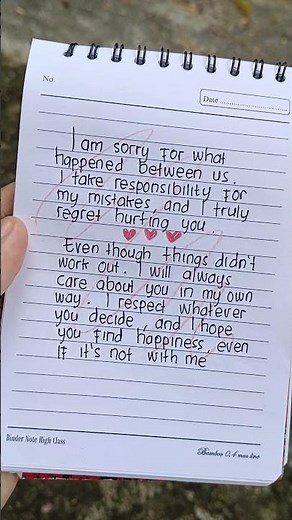 No.
Date
I am sorry for what
happened between us.
I take responsibility for
my mistakes, and I truly
regret hurting you.
Even though things didn't
work out. I will always
care about you in my own
way. I respect whatever
you decide, and I hope
you find happiness, even
if it's not with me
Binder Note High Class
Bamboo 0,4 mm line